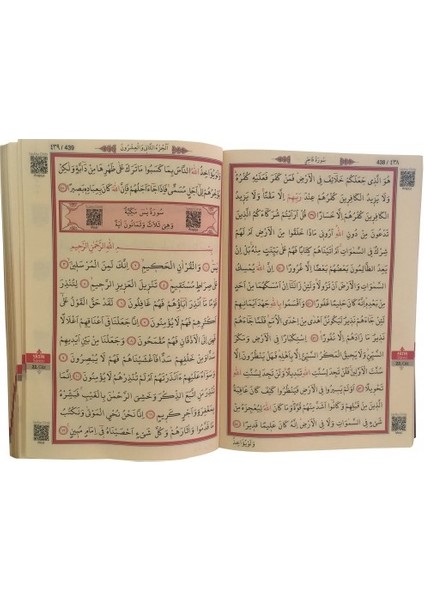 سُورَةُ فَاطِرٍ
438 / ٤٣٨
هُوَ الَّذِى جَعَلَكُمْ خَلَائِفَ فِى الْاَرْضِ فَمَنْ كَفَرَ فَعَلَيْهِ كُفْرُهُ
وَلَا يَزِيدُ الْكَافِرِينَ كُفْرُهُمْ عِنْدَ رَبِّهِمْ اِلَّا مَقْتًا وَلَا يَزِيدُ
الْكَافِرِينَ كُفْرُهُمْ اِلَّا خَسَارًا ﴿٣٩﴾ قُلْ اَرَاَيْتُمْ شُرَكَاءَكُمُ الَّذِينَ
تَدْعُونَ مِنْ دُونِ اللهِ اَرُونِى مَاذَا خَلَقُوا مِنَ الْاَرْضِ اَمْ لَهُمْ
شِرْكٌ فِى السَّمٰوَاتِ اَمْ اٰتَيْنَاهُمْ كِتَابًا فَهُمْ عَلٰى بَيِّنَتٍ مِنْهُ بَلْ اِنْ
يَعِدُ الظَّالِمُونَ بَعْضُهُمْ بَعْضًا اِلَّا غُرُورًا ﴿٤٠﴾ اِنَّ اللهَ يُمْسِكُ
السَّمٰوَاتِ وَالْاَرْضَ اَنْ تَزُولَا وَلَئِنْ زَالَتَا اِنْ اَمْسَكَهُمَا مِنْ اَحَدٍ
مِنْ بَعْدِهِ اِنَّهُ كَانَ حَلِيمًا غَفُورًا ﴿٤١﴾ وَاَقْسَمُوا بِاللهِ جَهْدَ اَيْمَانِهِمْ
لَئِنْ جَاءَهُمْ نَذِيرٌ لَيَكُونُنَّ اَهْدٰى مِنْ اِحْدَى الْاُمَمِ فَلَمَّا جَاءَهُمْ
نَذِيرٌ مَا زَادَهُمْ اِلَّا نُفُورًا ﴿٤٢﴾ اِسْتِكْبَارًا فِى الْاَرْضِ وَمَكْرَ
السَّيِّئِ وَلَا يَحِيقُ الْمَكْرُ السَّيِّئُ اِلَّا بِاَهْلِهِ فَهَلْ يَنْظُرُونَ
اِلَّا سُنَّتَ الْاَوَّلِينَ فَلَنْ تَجِدَ لِسُنَّتِ اللهِ تَبْدِيلًا وَلَنْ تَجِدَ لِسُنَّتِ اللهِ
تَحْوِيلًا ﴿٤٣﴾ اَوَلَمْ يَسِيرُوا فِى الْاَرْضِ فَيَنْظُرُوا كَيْفَ كَانَ عَاقِبَةُ
الَّذِينَ مِنْ قَبْلِهِمْ وَكَانُوا اَشَدَّ مِنْهُمْ قُوَّةً وَمَا كَانَ اللهُ لِيُعْجِزَهُ مِنْ
شَىْءٍ فِى السَّمٰوَاتِ وَلَا فِى الْاَرْضِ اِنَّهُ كَانَ عَلِيمًا قَدِيرًا ﴿٤٤﴾
وَلَوْ يُؤَاخِذُ
اَلْجُزْءُ الثَّانِى وَالْعِشْرُونَ
٤٣٩ / 439
وَلَوْ يُؤَاخِذُ اللهُ النَّاسَ بِمَا كَسَبُوا مَا تَرَكَ عَلٰى ظَهْرِهَا مِنْ دَابَّةٍ وَلٰكِنْ
يُؤَخِّرُهُمْ اِلٰى اَجَلٍ مُسَمًّى فَاِذَا جَاءَ اَجَلُهُمْ فَاِنَّ اللهَ كَانَ بِعِبَادِهِ بَصِيرًا ﴿٤٥﴾
سُورَةُ يٰسٓ مَكِّيَّةٌ
وَهِىَ ثَلَاثٌ وَثَمَانُونَ اٰيَةً
بِسْمِ اللهِ الرَّحْمٰنِ الرَّحِيمِ
يٰسٓ ﴿١﴾ وَالْقُرْاٰنِ الْحَكِيمِ ﴿٢﴾ اِنَّكَ لَمِنَ الْمُرْسَلِينَ ﴿٣﴾
عَلٰى صِرَاطٍ مُسْتَقِيمٍ ﴿٤﴾ تَنْزِيلَ الْعَزِيزِ الرَّحِيمِ ﴿٥﴾ لِتُنْذِرَ
قَوْمًا مَا اُنْذِرَ اٰبَاؤُهُمْ فَهُمْ غَافِلُونَ ﴿٦﴾ لَقَدْ حَقَّ الْقَوْلُ عَلٰى
اَكْثَرِهِمْ فَهُمْ لَا يُؤْمِنُونَ ﴿٧﴾ اِنَّا جَعَلْنَا فِى اَعْنَاقِهِمْ اَغْلَالًا
فَهِىَ اِلَى الْاَذْقَانِ فَهُمْ مُقْمَحُونَ ﴿٨﴾ وَجَعَلْنَا مِنْ بَيْنِ اَيْدِيهِمْ
سَدًّا وَمِنْ خَلْفِهِمْ سَدًّا فَاَغْشَيْنَاهُمْ فَهُمْ لَا يُبْصِرُونَ ﴿٩﴾
وَسَوَاءٌ عَلَيْهِمْ ءَاَنْذَرْتَهُمْ اَمْ لَمْ تُنْذِرْهُمْ لَا يُؤْمِنُونَ ﴿١٠﴾ اِنَّمَا
تُنْذِرُ مَنِ اتَّبَعَ الذِّكْرَ وَخَشِىَ الرَّحْمٰنَ بِالْغَيْبِ فَبَشِّرْهُ
بِمَغْفِرَةٍ وَاَجْرٍ كَرِيمٍ ﴿١١﴾ اِنَّا نَحْنُ نُحْيِ الْمَوْتٰى وَنَكْتُبُ
مَا قَدَّمُوا وَاٰثَارَهُمْ وَكُلَّ شَىْءٍ اَحْصَيْنَاهُ فِى اِمَامٍ مُبِينٍ ﴿١٢﴾